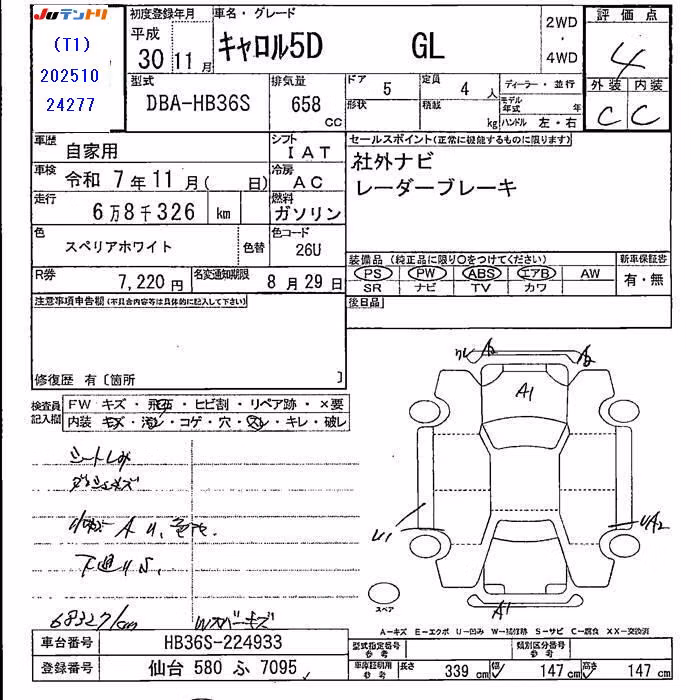 Juテントリ
(T1)
202510
24277
初度登録年月
平成
30 11 月
車名・グレード
キャロル5D GL
2WD
・
4WD
評価点
4
外装 内装
C C
型式
DBA-HB36S
排気量
658 CC
ドア 5
形状
定員 4 人
積載 kg
ディーラー・並行
モデル年式 年
ハンドル 左・右
車歴
自家用
シフト
IAT
車検
令和 7年11月( 日)
冷房
AC
走行
6万8千326 km
燃料
ガソリン
色
スペリアホワイト
色替
色コード
26U
R券
7,220 円
名変通知期限
8 月 29 日
セールスポイント(正常に機能するものに限ります)
社外ナビ
レーダーブレーキ
装備品 (純正品に限り○をつけてください)
PS PW ABS エアB AW
SR ナビ TV カワ
新車保証書
有・無
後日品
注意事項申告欄(不具合内容等は具体的に記入して下さい)
修復歴 有〔箇所 〕
検査員記入欄
FW キズ・飛石・ヒビ割・リペア跡・×要
内装 キズ・汚レ・コゲ・穴・スレ・キレ・破レ
シートしみ
下廻りS.
68327km
A2
A1
U1
UA2
A1
スペア
A-キズ E-エクボ U-凹み W-補修跡 S-サビ C-腐食 XX-交換済
車台番号
HB36S-224933
登録番号
仙台 580 ふ 7095
型式指定番号 参考
類別区分番号 参考
車庫証明用 参考
長さ 339 cm 幅 147 cm 高さ 147 cm